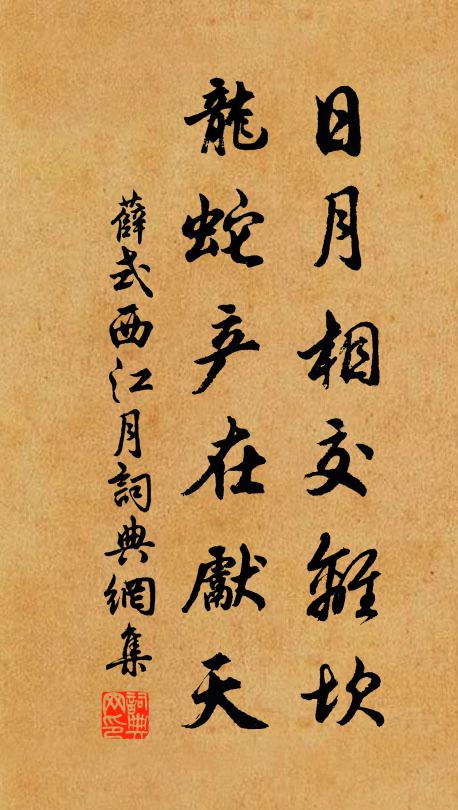 日月相交離坎
龍蛇产在獻天
薛式西江月詞典網集
詞典网印